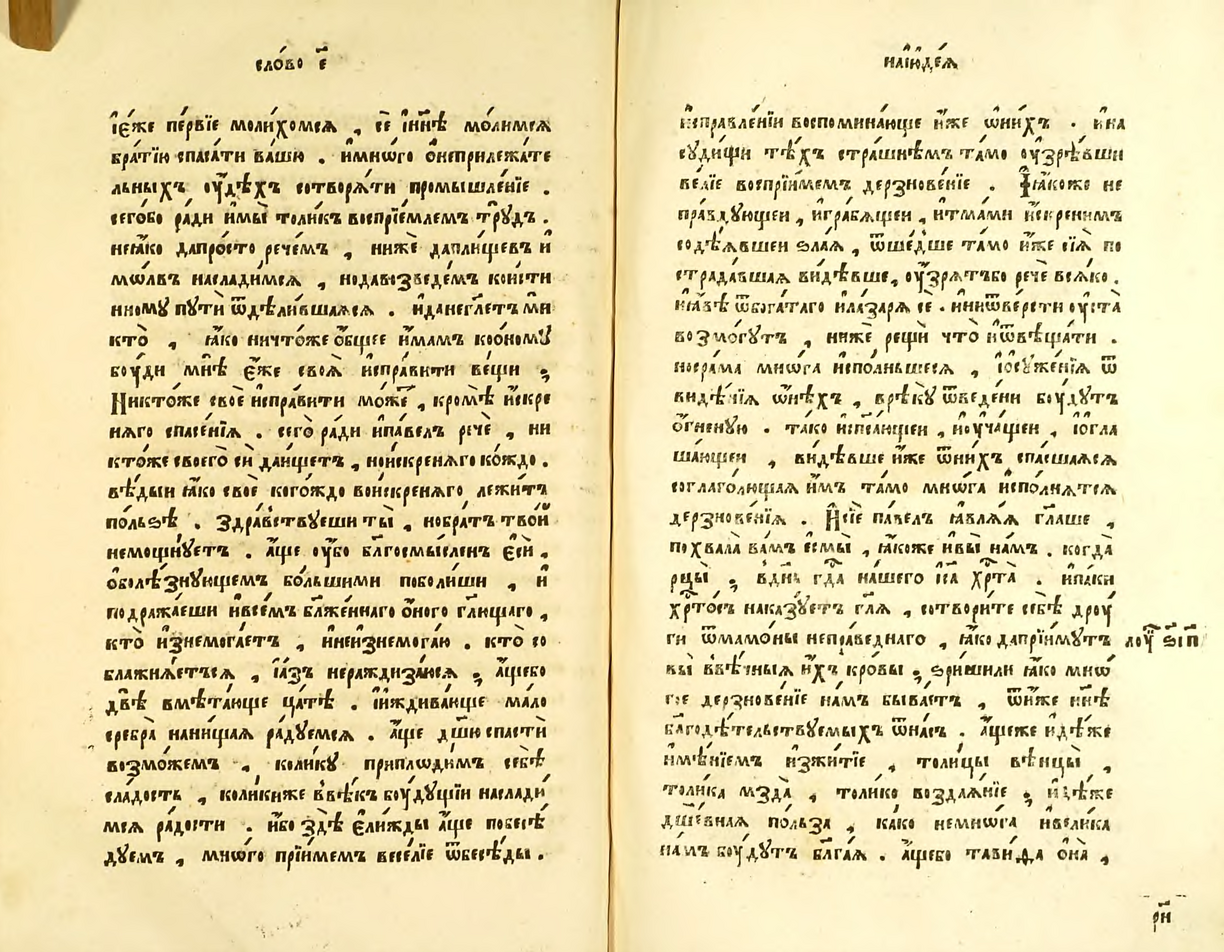 сло́во є҃
і҆є́же пе́рвїе моли́хомсѧ , сѐ і҆ нн҃ѣ мо́лимсѧ
бра́тїю спаса́ти ва́шю . и҆мно́го ѻ҆неприлежа́те
льныхъ ᲂу҆дѣ́хъ сотворѧ́ти промышле́нїе .
сегобо ра́ди и҆мы̀ толи́къ воспрїе́млемъ трꙋ́дъ .
неꙗ҆́ко дапро́сто рече́мъ , нижѐ даплищевъ и҆
мѡ́лвъ наслади́мсѧ , нодавозведе́мъ ко и҆́сти
нномꙋ пꙋтѝ ѿдѣли́вшаѧсѧ . и҆данегл҃етъ ми
кто̀ , ꙗ҆́ко ничто́же ѻ҆́бщее и҆́мамъ коѻ҆номꙋ̀
бᲂу́ди мнѣ̀ є҆́же своѧ̀ и҆спра́вити ве́щи ;
Никто́же своѐ и҆спра́вити мо́же , кромѣ̀ и҆́скре
нѧго спасе́нїѧ . сего̀ ра́ди и҆па́велъ речѐ , ни
кто́же своего̀ сѝ даи҆́щетъ , нои҆́скренѧго ко́ждо .
вѣ́дыи ꙗ҆́ко своѐ кого́ждо вои҆́скренѧго лежи́тъ
по́льѕѣ . Здра́вствꙋеши ты̀ , нобра́тъ тво́й
немощнꙋ́етъ . а҆́ще ᲂу҆́бо бл҃госмы́сленъ є҆сѝ ,
ѻ҆болѣ́знꙋющемъ бо́льшими поболи́ши , и҆
подража́еши и҆всѣ́мъ бл҃же́ннаго ѻ҆́ного гл҃ющаго ,
кто̀ и҆знемога́етъ , и҆неи҆знемога́ю . кто̀ со
блажнѧ́етъсѧ , і҆а҆́зъ нераждиза́юсѧ ; а҆́щебо
двѣ̀ вмѣта́юще ца́тѣ . і҆и҆ждива́юще ма́ло
сребра̀ нани́щаѧ ра́дꙋемсѧ . а҆́ще дш҃ю спастѝ
возмо́жемъ , коли́кꙋ приплѡ́димъ себѣ̀
сла́дость , коли́киже вве́къ бᲂу́дꙋщїи наслади
мсѧ ра́дости . и҆́бо здѣ̀ є҆ди́нжды а҆́ще побесѣ́
дꙋемъ , мно́го прїи́мемъ весе́лїе ѿбесѣ́ды .
наі҆ю҆де́ѧ
и҆справле́нїи воспомина́юще и҆́же ѿни́хъ . и҆на
сꙋди́щи тѣ́хъ стра́шнѣмъ та́мо ᲂу҆зрѣ́вши
ве́лїе воспрїи́мемъ дерзнове́нїе . Ꙗ҆́коже не
пра́вдꙋющеи , и҆гра́бѧщеи , и҆тма́ми и҆́скренимъ
содѣ́ѧвшеи ѕла́ѧ , ѿше́дше та́мо и҆́же сїѧ̀ по
страда́вшаѧ ви́дѣвше , ᲂу҆́зрѧтъбо речѐ всѧ́ко .
ꙗ҆́вѣ ѿбога́таго и҆ла́зарѧ сѐ . ниѿве́рсти ᲂу҆ста̀
возмо́гꙋтъ , нижѐ рещѝ что̀ и҆ѿвѣща́ти .
носра́ма мно́га и҆спо́лньшесѧ , і҆ѻ҆сꙋже́нїѧ ѿ
ви́дѣнїѧ ѻ҆нѣ́хъ , врѣ́кꙋ ѿведе́ни бᲂу́дꙋтъ
ѻ҆́гненꙋю . та́ко и҆спа́сающеи , и҆ᲂу҆ча́щеи , і҆ѻ҆гла
ша́ющеи , ви́дѣвше и҆́же ѿни́хъ спа́сшаѧсѧ
согла́голющаѧ и҆́мъ та́мо мно́га и҆спо́лнѧтсѧ
дерзнове́нїѧ . И҆сїѐ па́велъ ꙗ҆влѧ́ѧ гл҃аше ,
похвала̀ ва́мъ є҆смы̀ , ꙗ҆́коже и҆вы̀ на́мъ . когда̀
рцы̀ ; вдн҃ь гд҃а на́шего і҆са хрт҃а̀ . и҆па́ки
хрт҃о́съ наказꙋ́етъ гл҃ѧ , сотвори́те себѣ̀ дрᲂу́
ги ѿмамо́ны непра́веднаго , ꙗ҆́ко дапрїи́мꙋтъ
лᲂу҃ ѕ҃і п҃
вы̀ вѣ́чныѧ и҆́хъ кро́вы ; зри́шили ꙗ҆́ко мно́
гое дерзнове́нїе на́мъ быва́етъ , ѿи҆́же нн҃ѣ
благодѣ́тельствꙋемыхъ ѿна́съ . а҆́щеже и҆дѣ́же
и҆мѣ́нїемъ и҆зжи́тїе , толи́цы вѣнцы̀ ,
толи́ка мзда̀ , толи́ко воздаѧ́нїе ; и҆дѣ́же
дш҃е́внаѧ по́льза , ка́ко немно́га и҆вели́ка
на́мъ бᲂу́дꙋтъ бл҃га́ѧ . а҆́щебо тави́ѳа ѻ҆на̀ ,
рн҃